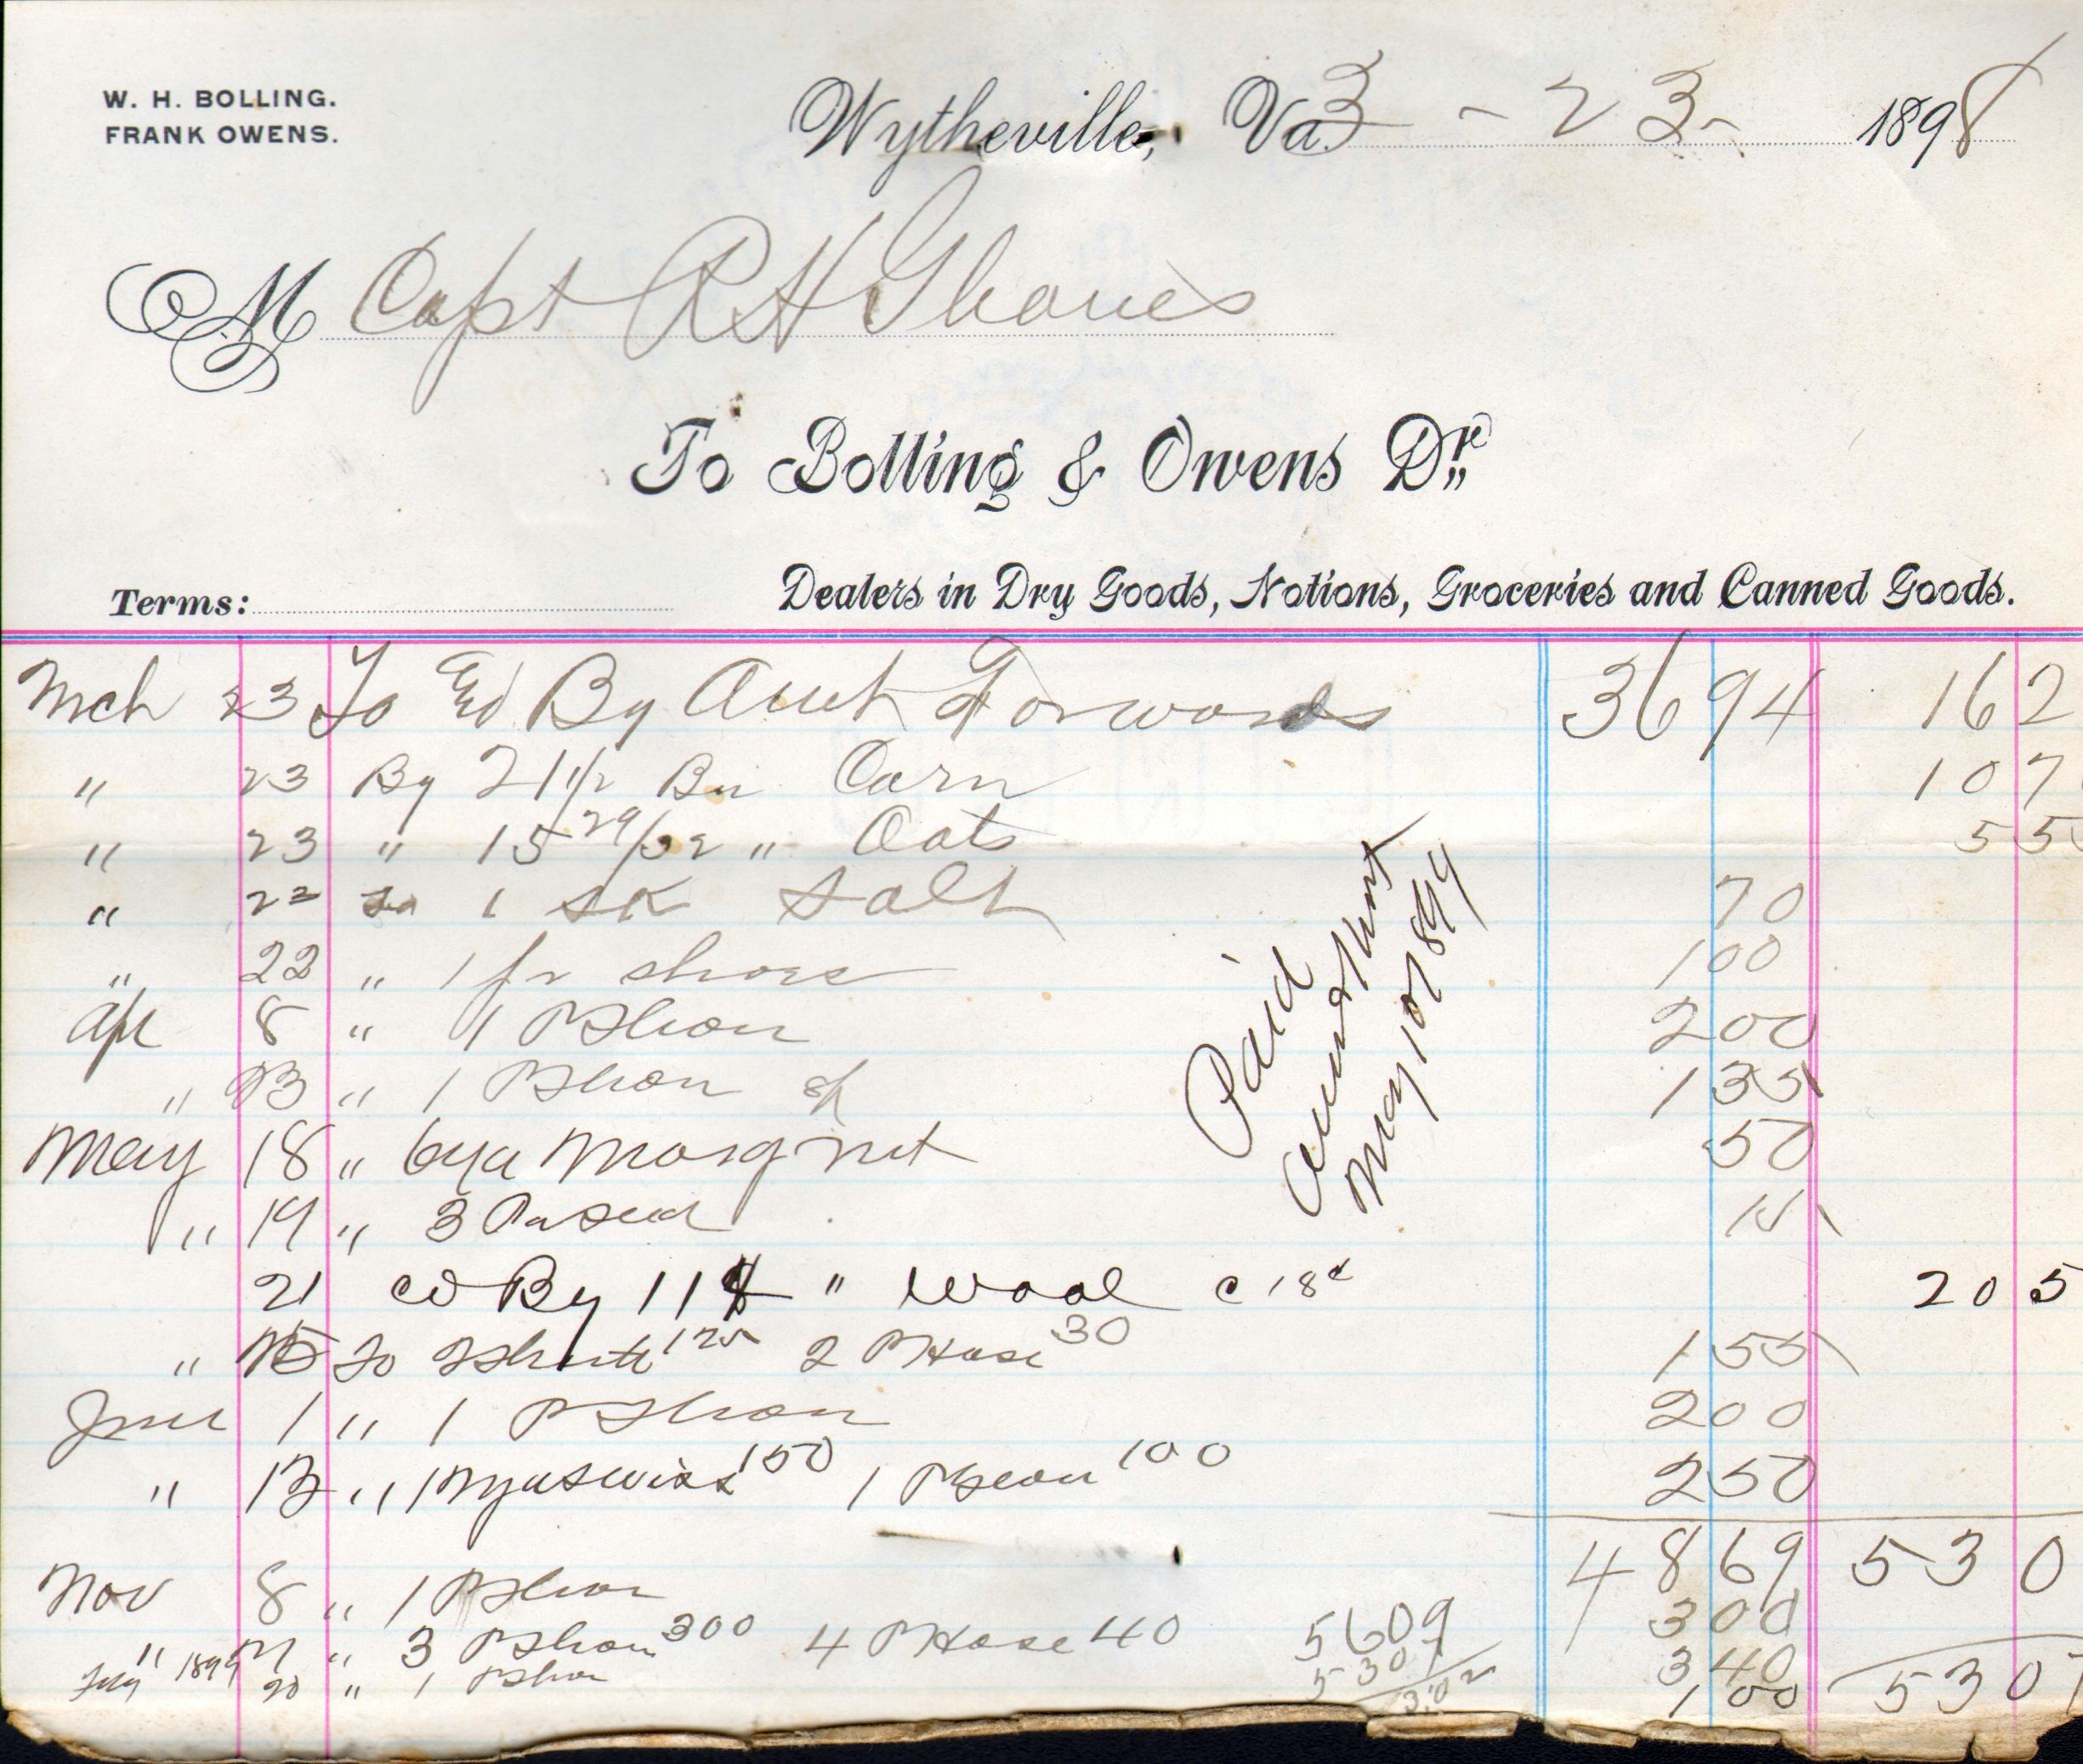 W. H. BOLLING.
FRANK OWENS.
Wytheville, Va. 3 - 23 - 1898
M Capt R H
To Bolling & Owens Dr.
Terms:
Dealers in Dry Goods, Notions, Groceries and Canned Goods.
Mch 23 To By Amt Forwards 3694 162
" 23 By 21 1/2 Bu Corn 107
" 23 " 15 29/32 " Oats 55
" 22 To 1 SK Salt 70
" 22 " 1 pr shoes 100
Apl 8 " 1 P Shoes 200
" 13 " 1 P Shoes 135
May 18 " 6 yd 50
" 19 " 3 15
21 By 11 " Wool c 18c 205
" 25 To 125 2 P Hose 30 155
June 1 " 1 P Shoes 200
" 13 " Swiss 150 1 P 100 250
4869 530
Nov 8 " 1 P Shoes 300
" " 3 P Shoes 300 4 P Hose 40 340
1899 20 " 1 P Shoes 100 5307
5609
5307
302
Paid
May 10 1899